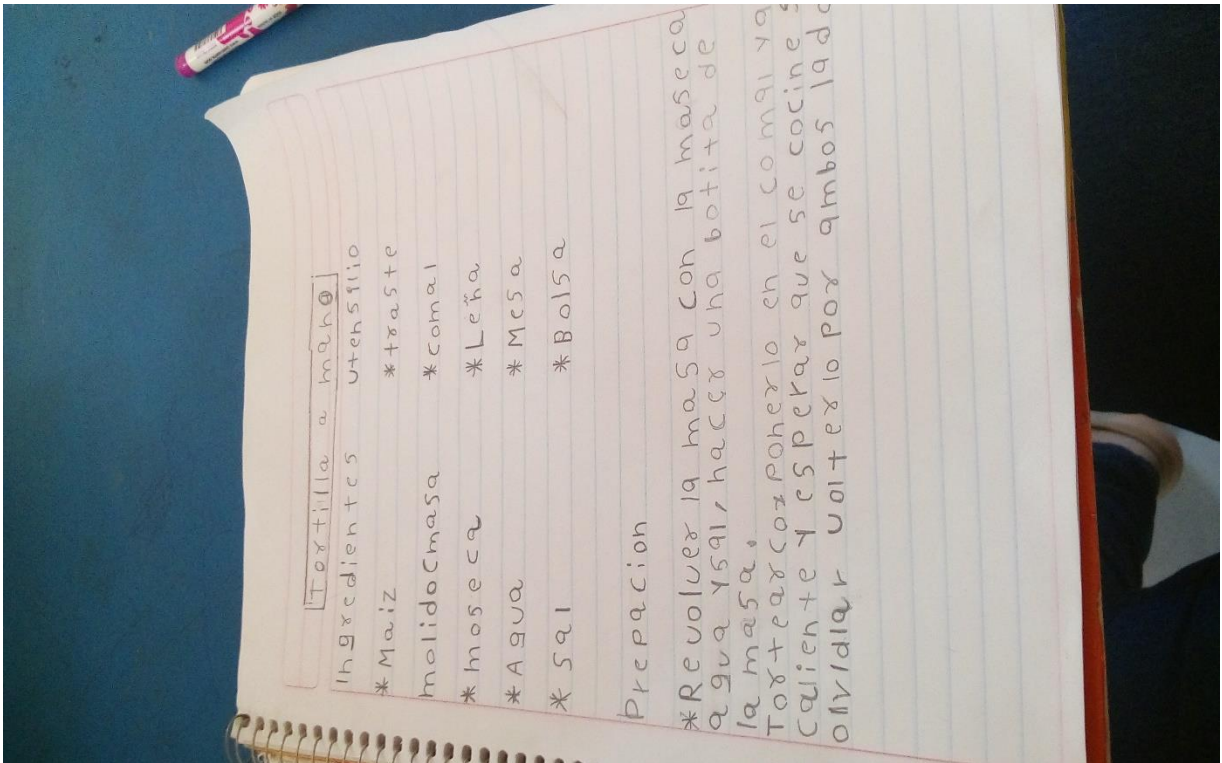 Tortilla a mano
Ingredientes utensilio
*Maiz *traste
molido(masa *comal
*moseca *Leña
*Agua *Mesa
*Sal *Bolsa
Prepacion
*Revolver la masa con la maseca
agua y sal, hacer una botita de
la masa.
Tortear ponerlo en el comal ya
caliente y esperar que se cocine s
olvidar volterlo por ambos lado